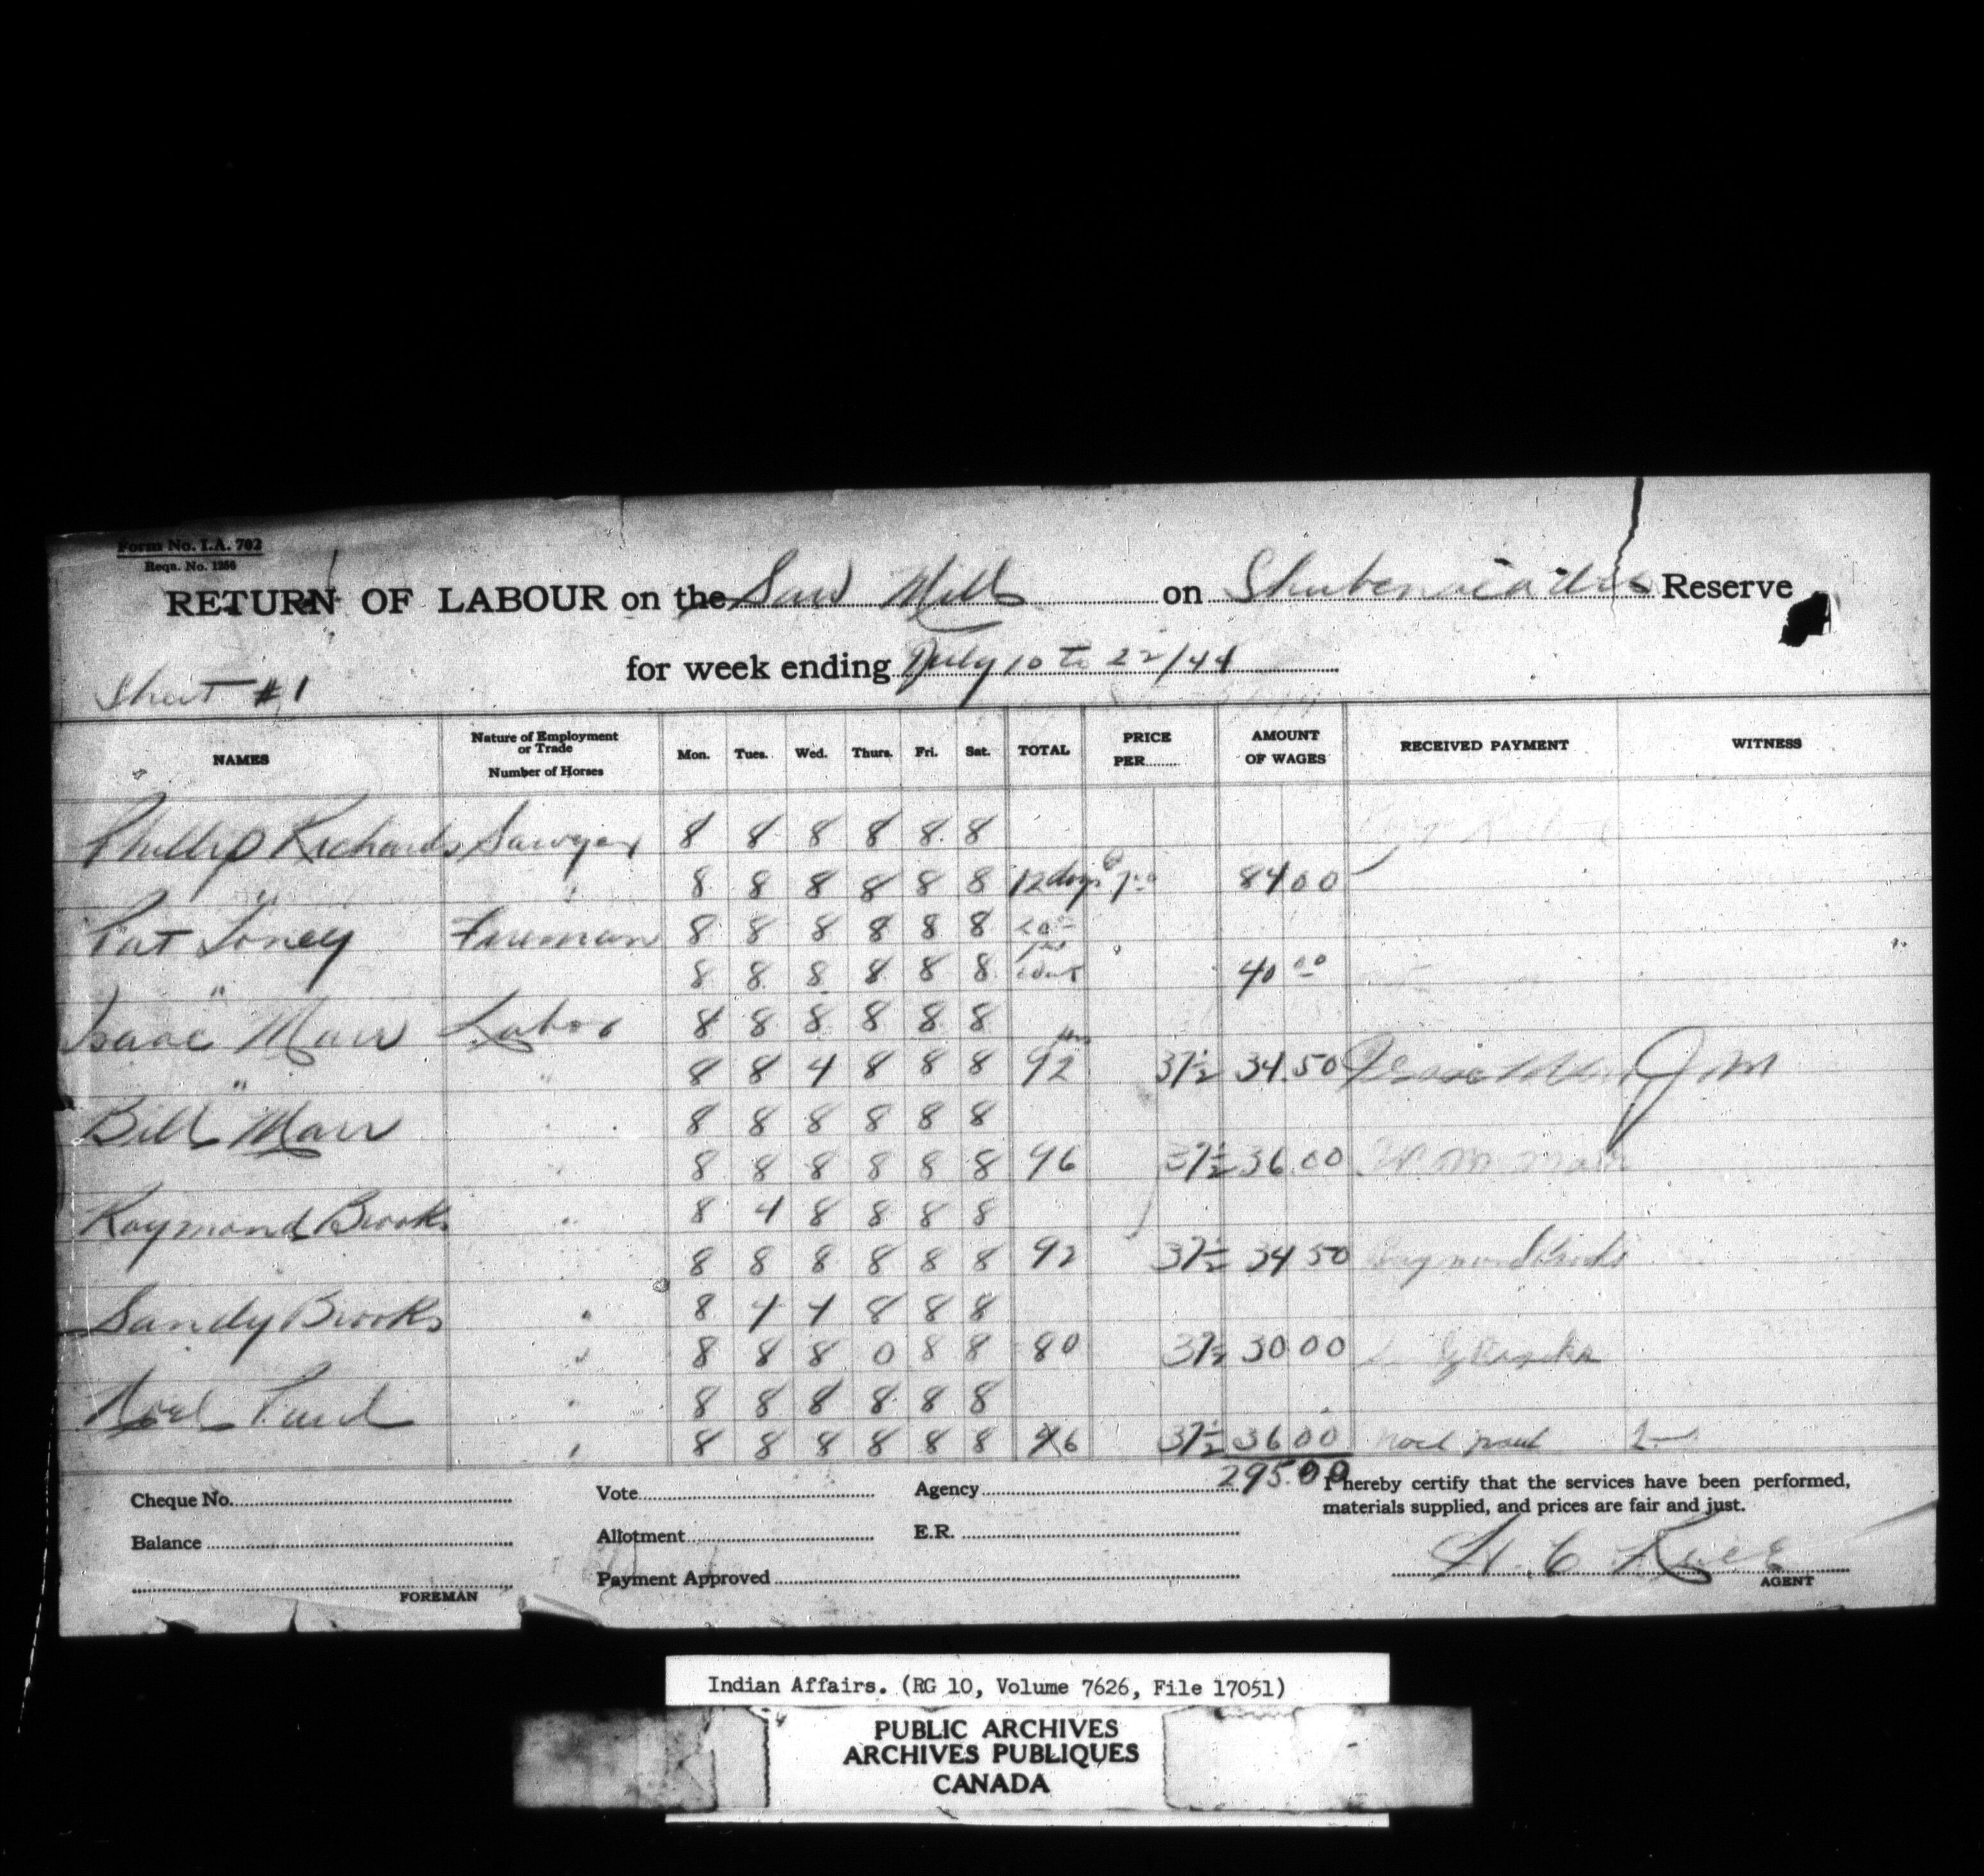 Form No. I.A. 702
Reqn. No. 1256
RETURN OF LABOUR on the Saw Mill on Shubenacadie Reserve
for week ending July 10 to 22/44
Sheet #1
NAMES Nature of Employment or Trade Number of Horses Mon. Tues. Wed. Thurs. Fri. Sat. TOTAL PRICE PER AMOUNT OF WAGES RECEIVED PAYMENT WITNESS
Phillip Richards Sawyer 8 8 8 8 8 8
" 8 8 8 8 8 8 12 days 84 00
Pat Toney Fireman 8 8 8 8 8 8
8 8 8 8 8 8 40 00
Isaac Marr Labor 8 8 8 8 8 8
" 8 8 4 8 8 8 92 hrs 37½ 34.50 JM
Bill Marr " 8 8 8 8 8 8
" 8 8 8 8 8 8 96 37½ 36.00
Raymond Brooks " 8 4 8 8 8 8
8 8 8 8 8 8 92 37½ 34 50 Raymond Brooks
Sandy Brooks " 8 4 4 8 8 8
" 8 8 8 0 8 8 80 37½ 30 00
Noel Paul " 8 8 8 8 8 8
" 8 8 8 8 8 8 96 37½ 36 00 noel paul
295.00
Cheque No. Vote Agency I hereby certify that the services have been performed,
materials supplied, and prices are fair and just.
Balance Allotment E.R.
Payment Approved H. C. Rice
FOREMAN AGENT
Indian Affairs. (RG 10, Volume 7626, File 17051)
PUBLIC ARCHIVES
ARCHIVES PUBLIQUES
CANADA